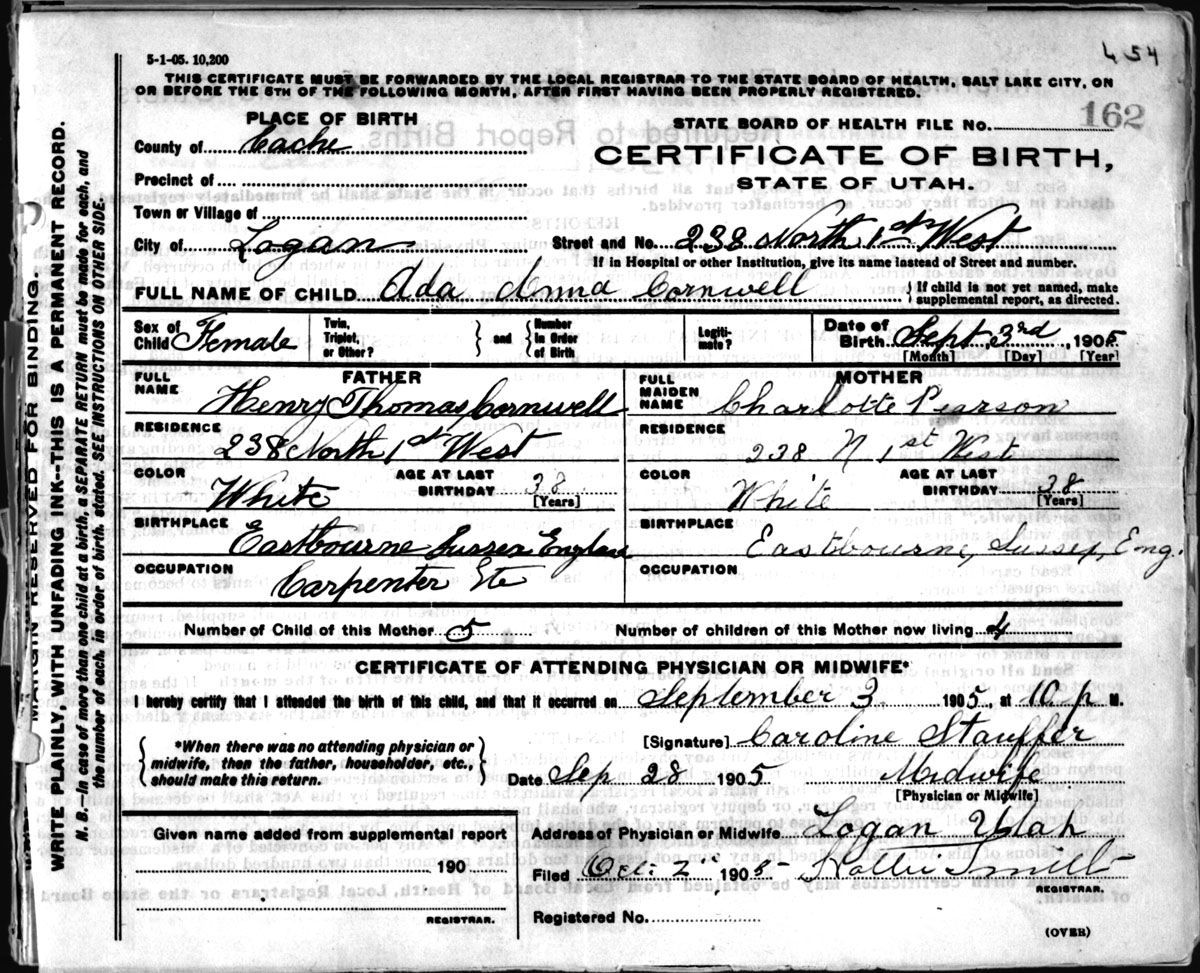 5-1-05. 10,200
454
THIS CERTIFICATE MUST BE FORWARDED BY THE LOCAL REGISTRAR TO THE STATE BOARD OF HEALTH, SALT LAKE CITY, ON
OR BEFORE THE 5TH OF THE FOLLOWING MONTH, AFTER FIRST HAVING BEEN PROPERLY REGISTERED.
PLACE OF BIRTH
STATE BOARD OF HEALTH FILE No. 162
County of Cache
CERTIFICATE OF BIRTH,
Precinct of
STATE OF UTAH.
Town or Village of
City of Logan Street and No. 238 North 1st West
If in Hospital or other Institution, give its name instead of Street and number.
FULL NAME OF CHILD Ada Anna Cornwell { If child is not yet named, make supplemental report, as directed.
Sex of Child Female Twin, Triplet, or Other? } and { Number in Order of Birth Legiti- mate? Date of Birth Sept 3rd, 1905
[Month] [Day] [Year]
FATHER
FULL NAME Henry Thomas Cornwell
RESIDENCE
238 North 1st West
COLOR White AGE AT LAST BIRTHDAY 38 [Years]
BIRTHPLACE
Eastbourne Sussex England
OCCUPATION
Carpenter Etc
MOTHER
FULL MAIDEN NAME Charlotte Pearson
RESIDENCE
238 N 1st West
COLOR White AGE AT LAST BIRTHDAY 38 [Years]
BIRTHPLACE
Eastbourne, Sussex, Eng.
OCCUPATION
Number of Child of this Mother 5 Number of children of this Mother now living 4
CERTIFICATE OF ATTENDING PHYSICIAN OR MIDWIFE*
I hereby certify that I attended the birth of this child, and that it occurred on September 3 1905, at 10 p M.
{ *When there was no attending physician or
midwife, then the father, householder, etc.,
should make this return. }
[Signature] Caroline Stauffer
Date Sep 28 1905. Midwife
[Physician or Midwife]
Given name added from supplemental report
190
REGISTRAR.
Address of Physician or Midwife Logan Utah
Filed Oct. 2 1905 Smith
REGISTRAR.
Registered No.
(OVER)
MARGIN RESERVED FOR BINDING.
WRITE PLAINLY, WITH UNFADING INK--THIS IS A PERMANENT RECORD.
N. B.--In case of more than one child at birth, a SEPARATE RETURN must be made for each, and
the number of each, in order of birth, stated. SEE INSTRUCTIONS ON OTHER SIDE.